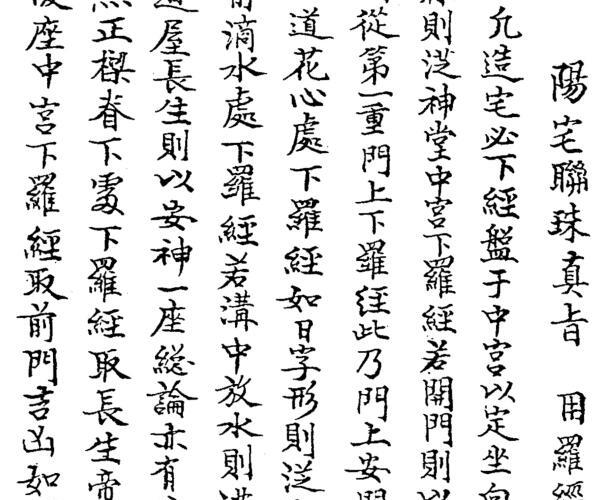 陽宅聯珠真旨 用羅經
凡造宅必下經盤于中宮以定坐向
則從神堂中宮下羅經若開門則以
從第一重門上下羅經此乃門上安門
道花心處下羅經如日字形則從
滴水處下羅經若溝中放水則溝
屋長生則以安神一座総論亦有
正樑脊下處下羅經取長生帝
座中宮下羅經取前門言凶如